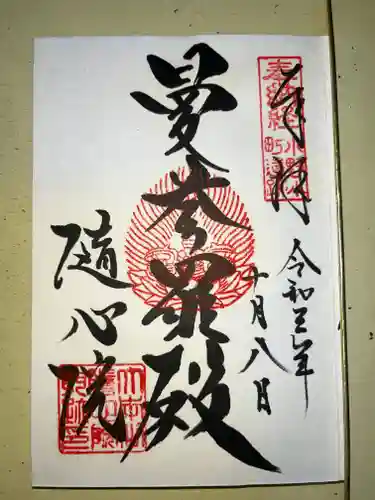 奉拝
令和三年
十月八日
曼荼羅殿
随心院